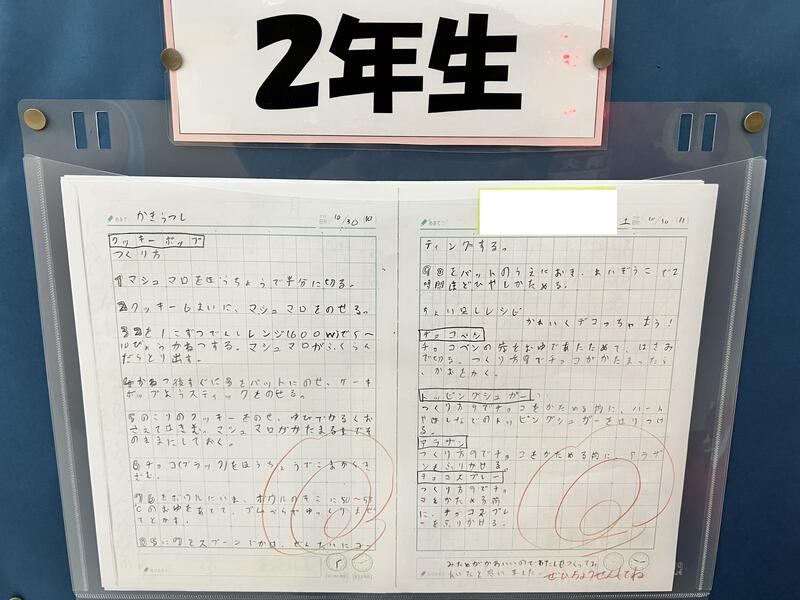 2年生
かきうつし
10/30
クッキーポップ
つくり方
1マシュマロをほうちょうで半分に切る。
2クッキー6まいに、マシュマロをのせる。
32を1こずつでんしレンジ(600W)で5〜
10びょうかねつする。マシュマロがふくらん
だらとり出す。
4かねつ後すぐに3をバットにのせ、ケーキ
ポップようスティックをのせる。
5のこりのクッキーをのせ、ゆびでかるくお
さえてはさむ。マシュマロがかたまるまでそ
のままにしておく。
6チョコ(ブラック)をほうちょうでこまかくき
ざむ。
76をボウルにいれ、ボウルのそこに50〜55
℃のおゆをあてて、ゴムべらでゆっくりまぜ
てとかす。
85に7をスプーンでかけ、ぜんたいにコー
10/30
ティングする。
98をバットのうえにおき、れいぞうこで2
時間ほどひやしかためる。
ちょいほしレシピ
かわいくデコっちゃおう!
チョコペン
チョコペンの先をおゆであたためて、はさみ
で切る。つくり方9でチョコがかたまったら、
かおをかく。
トッピングシュガー
つくり方9でチョコをかためる前に、ハート
やほしなどのトッピングシュガーをはりつけ
る。
アラザン
つくり方9でチョコをかためる前に、アラザ
ンをふりかける。
チョコスプレー
つくり方9でチョ
コをかためる前
に、チョコスプレ
ーをふりかける。
みためがかわいいのであたしもつくってみ
たいなと思いました。
ぜひちょうせんしてね